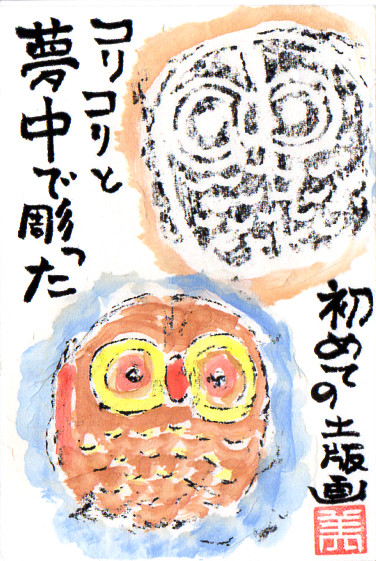 コリコリと
夢中で彫った
初めての土版画
美